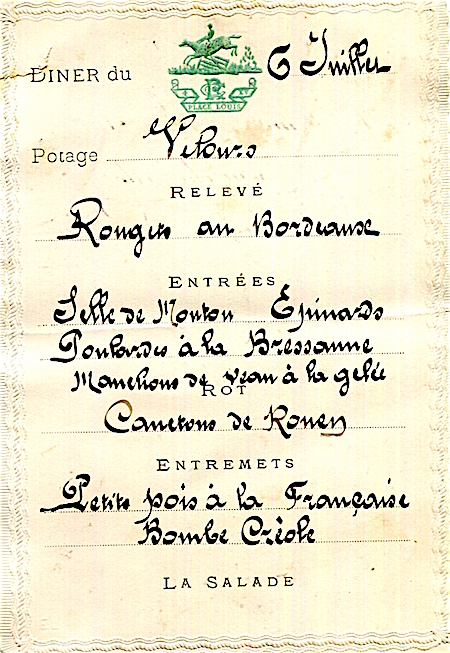 DINER du 6 Juillet
PLACE LOUIS
Potage Velours
RELEVÉ
Rougets au Bordeaux
ENTRÉES
Selle de Mouton Epinards
Poulardes à la Bressanne
Manchons de veau à la gelée
ROT
Canetons de Rouen
ENTREMETS
Petits pois à la Française
Bombe Créole
LA SALADE